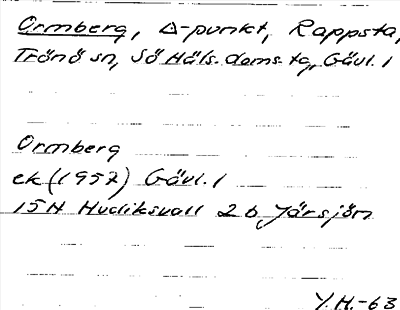 Ormberg, Δ-punkt, Rappsta,
Trönö sn, Sö Häls. doms. tg, Gävl. l
Ormberg
ek (1957) Gävl. l
15H Hudiksvall 2 b Järsjön
Y.H.-63